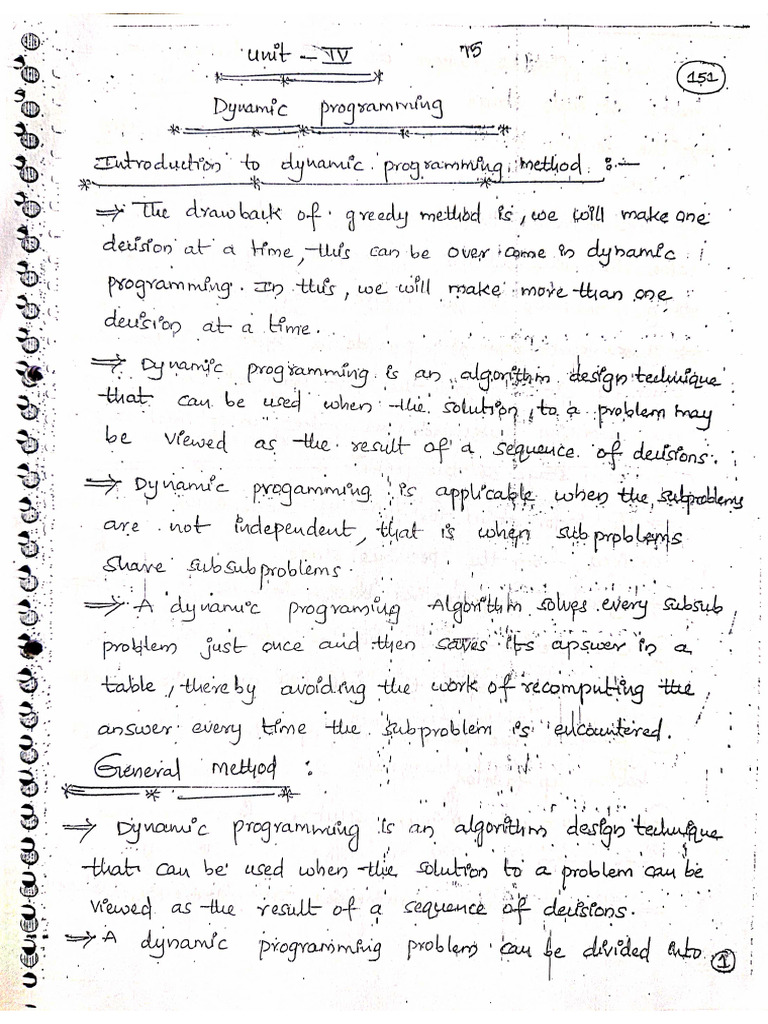 Unit - IV 75
151
Dynamic programming
Introduction to dynamic programming method :-
⇒ The drawback of greedy method is, we will make one
decision at a time, this can be over come in dynamic
programming. In this, we will make more than one
decision at a time.
⇒ Dynamic programming is an algorithm design technique
that can be used when the solution to a problem may
be viewed as the result of a sequence of decisions.
⇒ Dynamic progamming is applicable when the subproblems
are not independent, that is when subproblems
share subsubproblems.
⇒ A dynamic programing Algorithm solves every subsub
problem just once and then saves its answer in a
table, thereby avoiding the work of recomputing the
answer every time the subproblem is encountered.
General method :
⇒ Dynamic programming is an algorithm design technique
that can be used when the solution to a problem can be
viewed as the result of a sequence of decisions.
⇒ A dynamic programming problem can be divided into
1